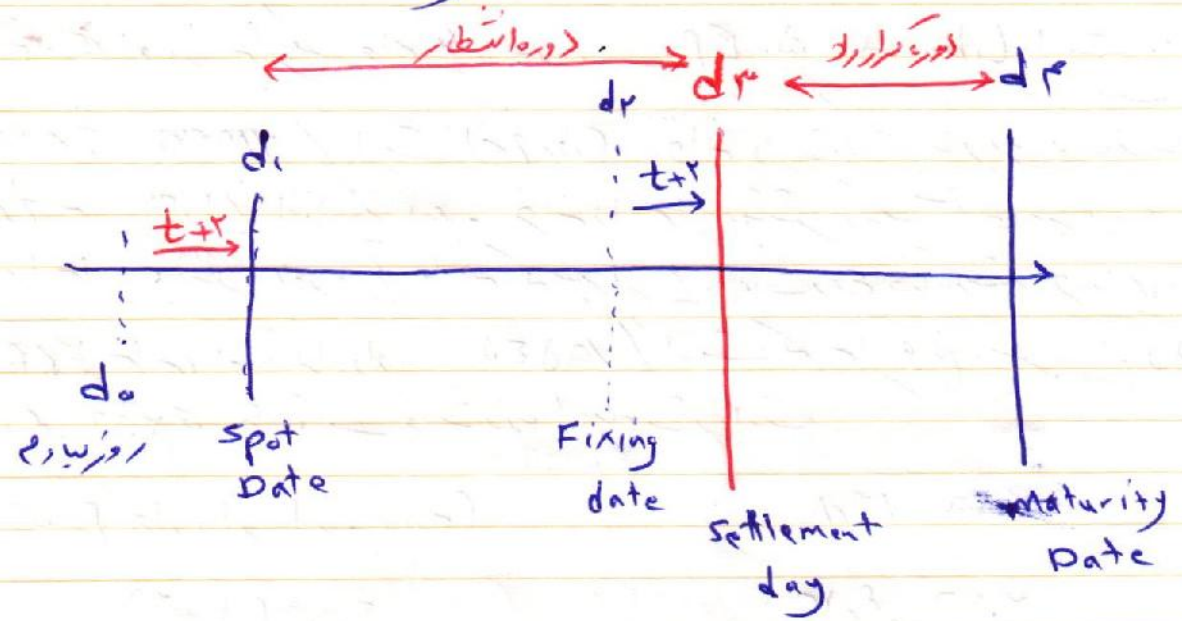 دوره انتظار
دوره قرارداد
d۲
d۳
d۴
d۱
t+۲
t+۲
d۰
روز
Spot
Date
Fixing
date
Settlement
day
Maturity
Date